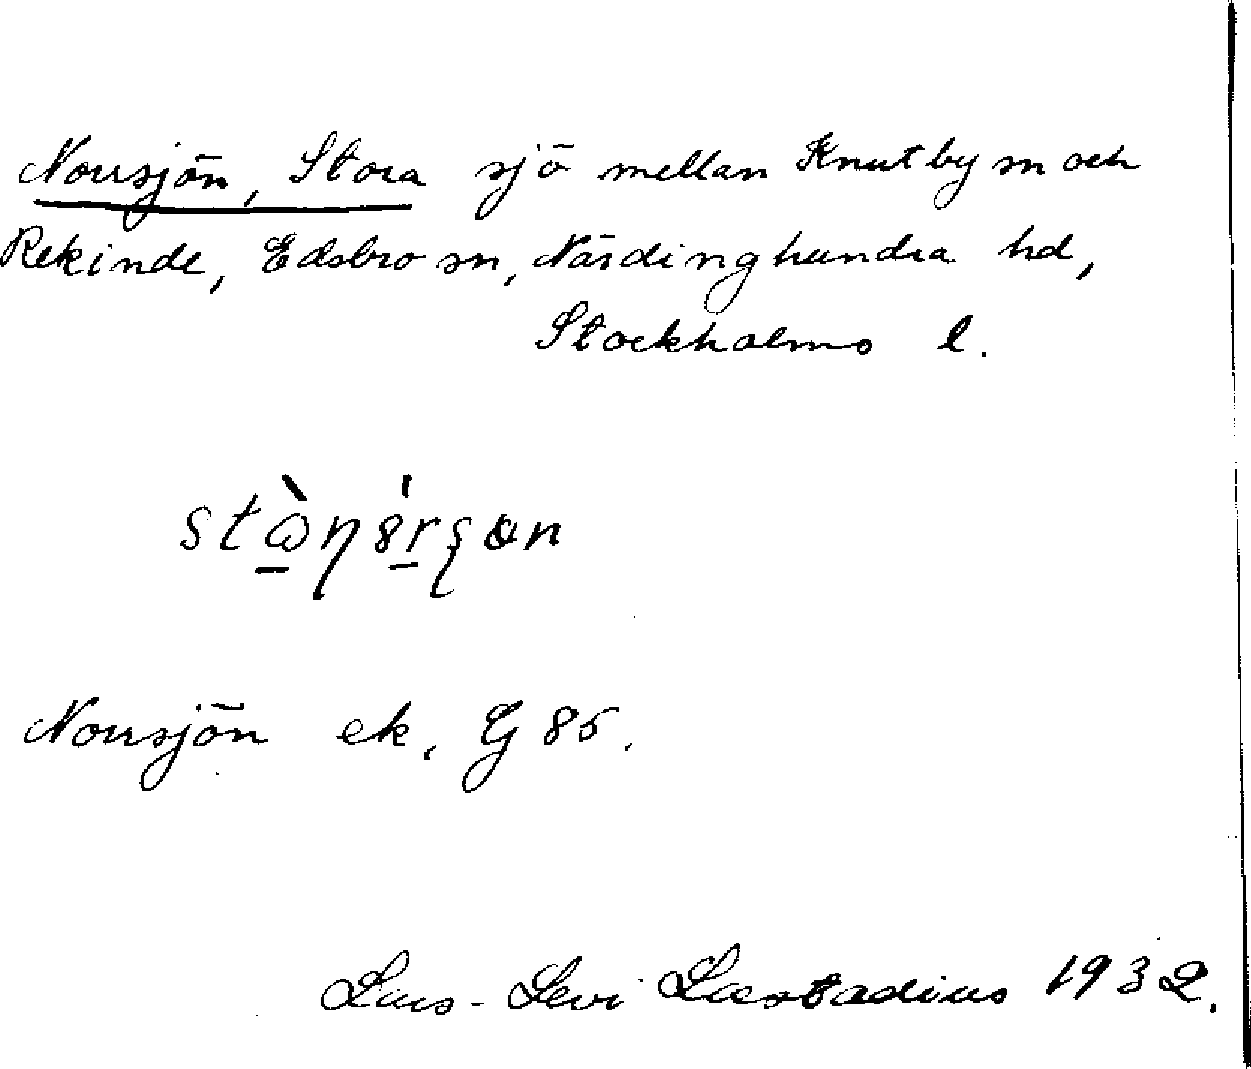 Norrsjön, Stora sjö mellan Knutby sn och
Rekinde, Edsbro sn, Närdinghundra hd,
Stockholms l.
Norrsjön ek. G 85.
Lars-Levi Læstadius 1932.